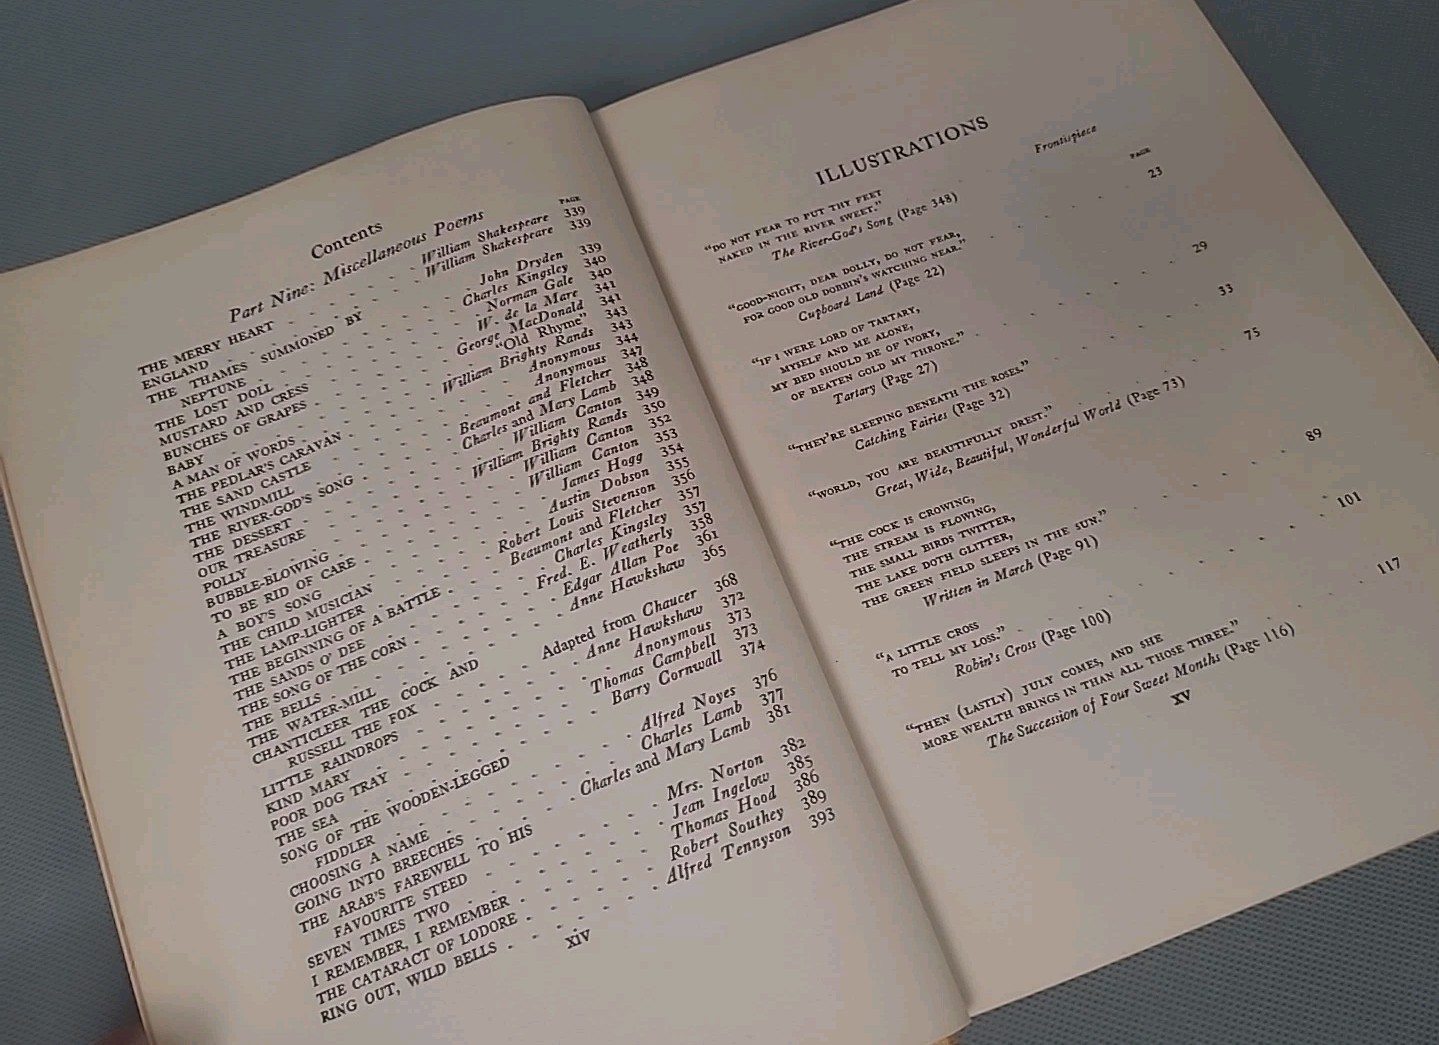 Contents
Part Nine: Miscellaneous Poems
PAGE
THE MERRY HEART . . . . William Shakespeare 339
ENGLAND . . . . William Shakespeare 339
THE THAMES SUMMONED BY
NEPTUNE . . . . John Dryden 339
THE LOST DOLL . . . . Charles Kingsley 340
MUSTARD AND CRESS . . . . Norman Gale 340
BUNCHES OF GRAPES . . . . W. de la Mare 341
BABY . . . . George MacDonald 341
A MAN OF WORDS . . . . "Old Rhyme" 343
THE PEDLAR'S CARAVAN . . . . William Brighty Rands 343
THE SAND CASTLE . . . . Anonymous 344
THE WINDMILL . . . . Anonymous 347
THE RIVER-GOD'S SONG . . . . Beaumont and Fletcher 348
THE DESSERT . . . . Charles and Mary Lamb 348
OUR TREASURE . . . . William Canton 349
POLLY . . . . William Brighty Rands 350
BUBBLE-BLOWING . . . . William Canton 352
TO BE RID OF CARE . . . . William Canton 353
A BOY'S SONG . . . . James Hogg 354
THE CHILD MUSICIAN . . . . Austin Dobson 355
THE LAMP-LIGHTER . . . . Robert Louis Stevenson 356
THE BEGINNING OF A BATTLE . . . . Beaumont and Fletcher 357
THE SANDS O' DEE . . . . Charles Kingsley 357
THE SONG OF THE CORN . . . . Fred. E. Weatherly 358
THE BELLS . . . . Edgar Allan Poe 361
THE WATER-MILL . . . . Anne Hawkshaw 365
CHANTICLEER THE COCK AND
RUSSELL THE FOX . . . . Adapted from Chaucer 368
LITTLE RAINDROPS . . . . Anne Hawkshaw 372
KIND MARY . . . . Anonymous 373
POOR DOG TRAY . . . . Thomas Campbell 373
THE SEA . . . . Barry Cornwall 374
SONG OF THE WOODEN-LEGGED
FIDDLER . . . . Alfred Noyes 376
CHOOSING A NAME . . . . Charles Lamb 377
GOING INTO BREECHES . . . . Charles and Mary Lamb 381
THE ARAB'S FAREWELL TO HIS
FAVOURITE STEED . . . . Mrs. Norton 382
SEVEN TIMES TWO . . . . Jean Ingelow 385
I REMEMBER, I REMEMBER . . . . Thomas Hood 386
THE CATARACT OF LODORE . . . . Robert Southey 389
RING OUT, WILD BELLS . . . . Alfred Tennyson 393
xiv
ILLUSTRATIONS
"DO NOT FEAR TO PUT THY FEET
NAKED IN THE RIVER SWEET."
The River-God's Song (Page 348) Frontispiece
PAGE
"GOOD-NIGHT, DEAR DOLLY, DO NOT FEAR,
FOR GOOD OLD DOBBIN'S WATCHING NEAR."
Cupboard Land (Page 22) . . . . 23
"IF I WERE LORD OF TARTARY,
MYSELF AND ME ALONE,
MY BED SHOULD BE OF IVORY,
OF BEATEN GOLD MY THRONE."
Tartary (Page 27) . . . . 29
"THEY'RE SLEEPING BENEATH THE ROSES."
Catching Fairies (Page 32) . . . . 33
"WORLD, YOU ARE BEAUTIFULLY DREST."
Great, Wide, Beautiful, Wonderful World (Page 73) . . . . 75
"THE COCK IS CROWING,
THE STREAM IS FLOWING,
THE SMALL BIRDS TWITTER,
THE LAKE DOTH GLITTER,
THE GREEN FIELD SLEEPS IN THE SUN."
Written in March (Page 91) . . . . 89
"A LITTLE CROSS
TO TELL MY LOSS."
Robin's Cross (Page 100) . . . . 101
"THEN (LASTLY) JULY COMES, AND SHE
MORE WEALTH BRINGS IN THAN ALL THOSE THREE."
The Succession of Four Sweet Months (Page 116) . . . . 117
xv